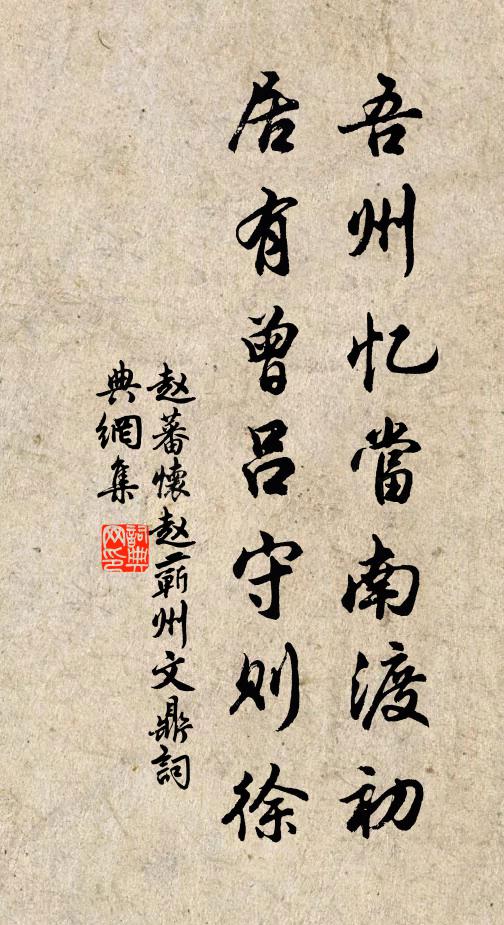 吾州忆當南渡初
居有曾吕守则徐
赵蕃懷赵蕲州文鼎詞
典網集
詞典网印